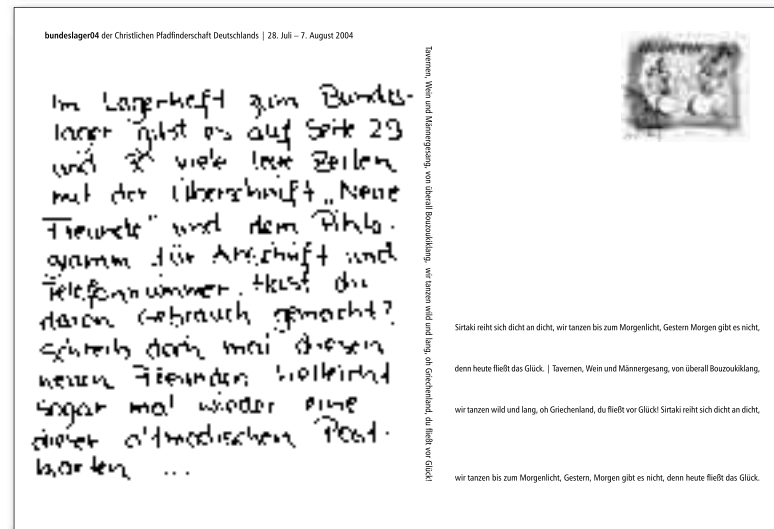 bundeslager04 der Christlichen Pfadfinderschaft Deutschlands | 28. Juli – 7. August 2004
Im Lagerheft zum Bundes-
lager gibt es auf Seite 29
und 30 viele leere Zeilen
mit der Überschrift „Neue
Freunde" und dem Pikto-
gramm für Anschrift und
Telefonnummer. Hast du
davon Gebrauch gemacht?
Schreib doch mal diesen
neuen Freunden vielleicht
sogar mal wieder eine
dieser altmodischen Post-
karten ...
Tavernen, Wein und Männergesang, von überall Bouzoukiklang, wir tanzen wild und lang, oh Griechenland, du fließt vor Glück!
Sirtaki reiht sich dicht an dicht, wir tanzen bis zum Morgenlicht, Gestern Morgen gibt es nicht,
denn heute fließt das Glück. | Tavernen, Wein und Männergesang, von überall Bouzoukiklang,
wir tanzen wild und lang, oh Griechenland, du fließt vor Glück! Sirtaki reiht sich dicht an dicht,
wir tanzen bis zum Morgenlicht, Gestern, Morgen gibt es nicht, denn heute fließt das Glück.